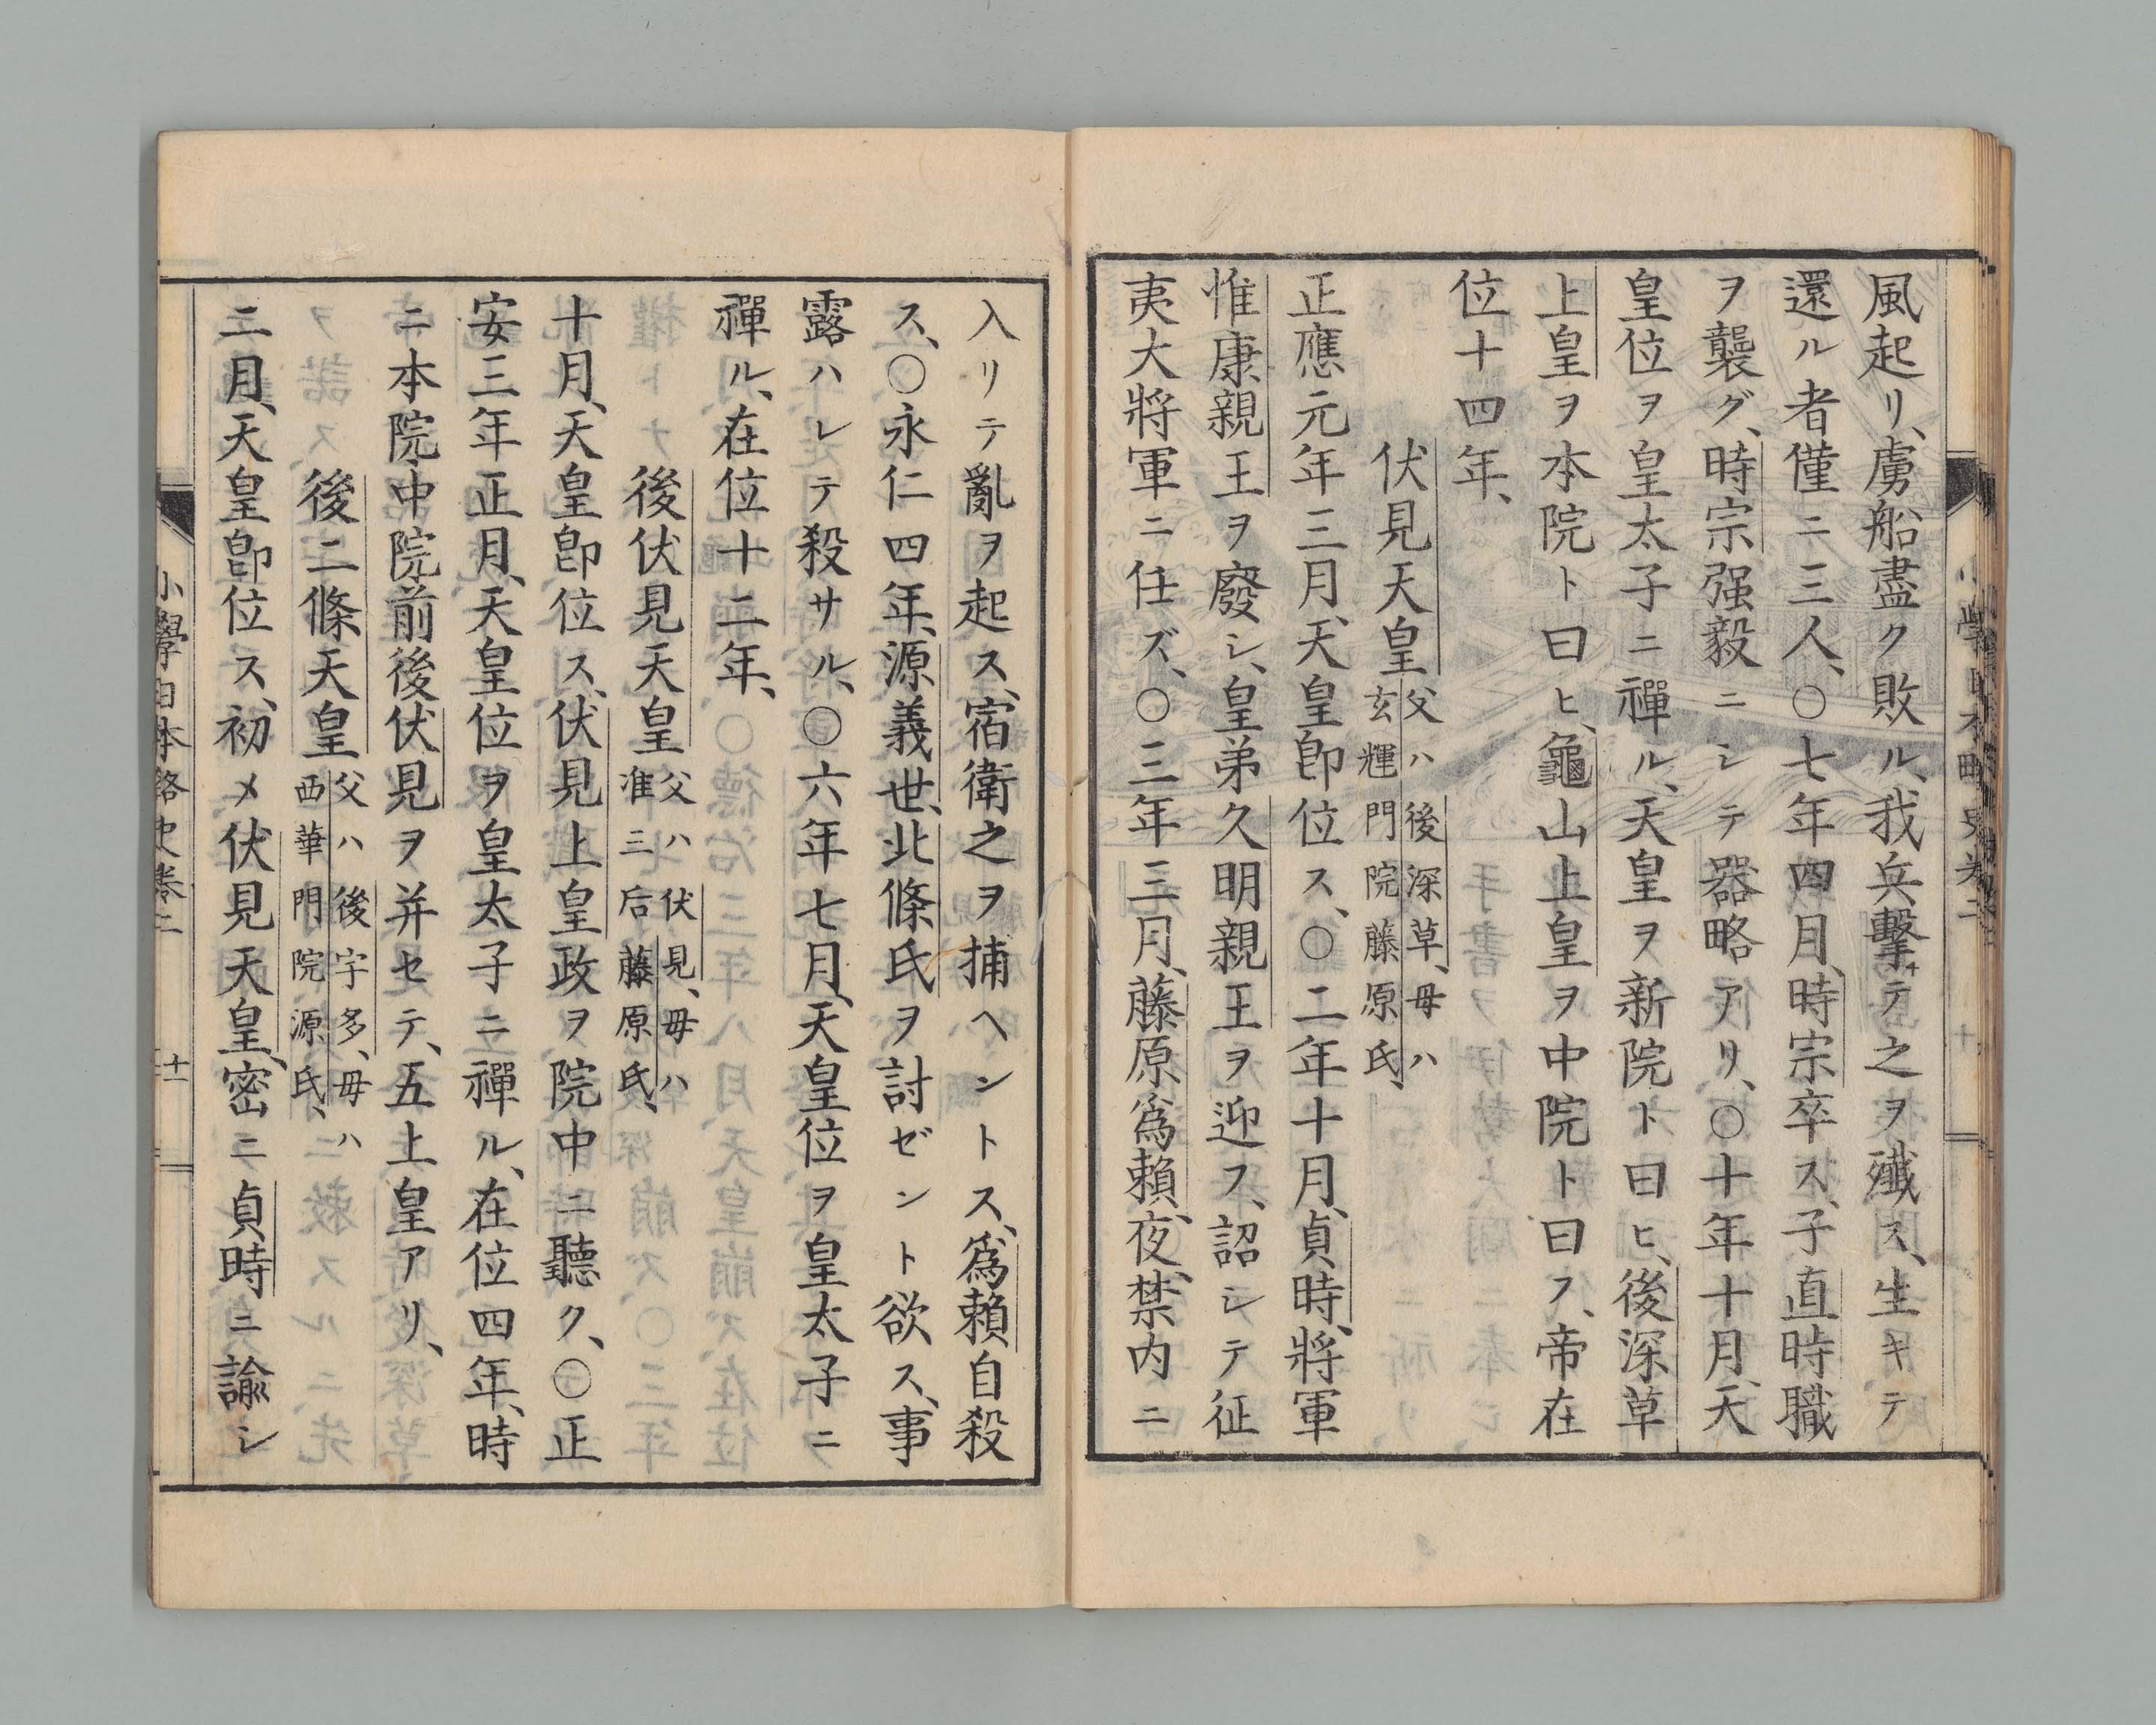 風起リ、虜船盡ク敗ル、我兵擊テ之ヲ殲ス、生キテ
還ル者僅ニ三人、〇七年四月、時宗卒ス、子直時職
ヲ襲グ、時宗强毅ニシテ器略アリ、〇十年十月、天
皇位ヲ皇太子ニ禪ル、天皇ヲ新院ト曰ヒ、後深草
上皇ヲ本院ト曰ヒ、龜山上皇ヲ中院ト曰フ、帝在
位十四年、
伏見天皇 父ハ後深草、母ハ
玄輝門院藤原氏、
正應元年三月、天皇卽位ス、〇二年十月、貞時、將軍
惟康親王ヲ廢シ、皇弟久明親王ヲ迎フ、詔シテ征
夷大將軍ニ任ズ、〇三年三月、藤原爲賴、夜、禁内ニ
入リテ亂ヲ起ス、宿衛之ヲ捕ヘントス、爲賴自殺
ス、〇永仁四年、源義世、北條氏ヲ討ゼント欲ス、事
露ハレテ殺サル、〇六年七月、天皇位ヲ皇太子ニ
禪ル、在位十二年、
後伏見天皇 父ハ伏見、母ハ
准三后藤原氏、
十月、天皇卽位ス、伏見上皇政ヲ院中ニ聽ク、〇正
安三年正月、天皇位ヲ皇太子ニ禪ル、在位四年、時
ニ本院、中院、前後伏見ヲ并セテ、五上皇アリ、
後二條天皇 父ハ後宇多、母ハ
西華門院源氏、
三月、天皇卽位ス、初メ伏見天皇、密ニ貞時ニ諭シ
小學日本略史卷二 十一